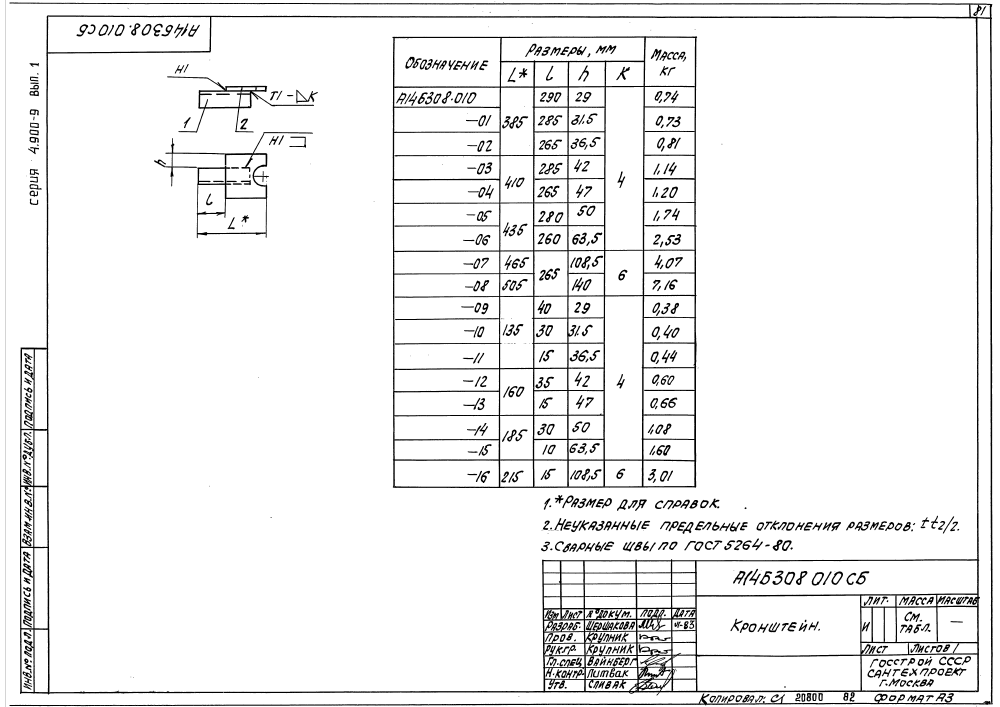 81
А14Б308.010 СБ
серия 4.900-9 вып. 1
Н1
Т1 - ⊿К
1
2
Н1
h
l
L*
Обозначение | Размеры, мм | Масса, кг
L* | l | h | К
А14Б308.010 | 385 | 290 | 29 | 4 | 0,74
—01 | 285 | 31.5 | 0,73
—02 | 265 | 36,5 | 0,81
—03 | 410 | 285 | 42 | 1,14
—04 | 265 | 47 | 1,20
—05 | 435 | 280 | 50 | 1,74
—06 | 260 | 63,5 | 2,53
—07 | 465 | 265 | 108,5 | 6 | 4,07
—08 | 505 | 140 | 7,16
—09 | 135 | 40 | 29 | 4 | 0,38
—10 | 30 | 31.5 | 0,40
—11 | 15 | 36,5 | 0,44
—12 | 160 | 35 | 42 | 0,60
—13 | 15 | 47 | 0,66
—14 | 185 | 30 | 50 | 1,08
—15 | 10 | 63,5 | 1,60
—16 | 215 | 15 | 108,5 | 6 | 3,01
1.*Размер для справок.
2.Неуказанные предельные отклонения размеров: ±t2/2.
3.Сварные швы по ГОСТ 5264-80.
Инв.№ подл. Подпись и дата Взам.инв.№ Инв.№ дубл. Подпись и дата
А14Б308 010 СБ
Кронштейн.
Лит. Масса Масштаб
И См. табл. —
Лист Листов 1
Госстрой СССР
Сантехпроект
г.Москва
Изм Лист № докум. Подп. Дата
Разраб. Шершакова VI-83
Пров. Крупник
Рук.гр. Крупник
Гл.спец Вайнберг
Н.контр. Питвак
Утв. Сливак
Копировал: С1 20800 82 Формат А3